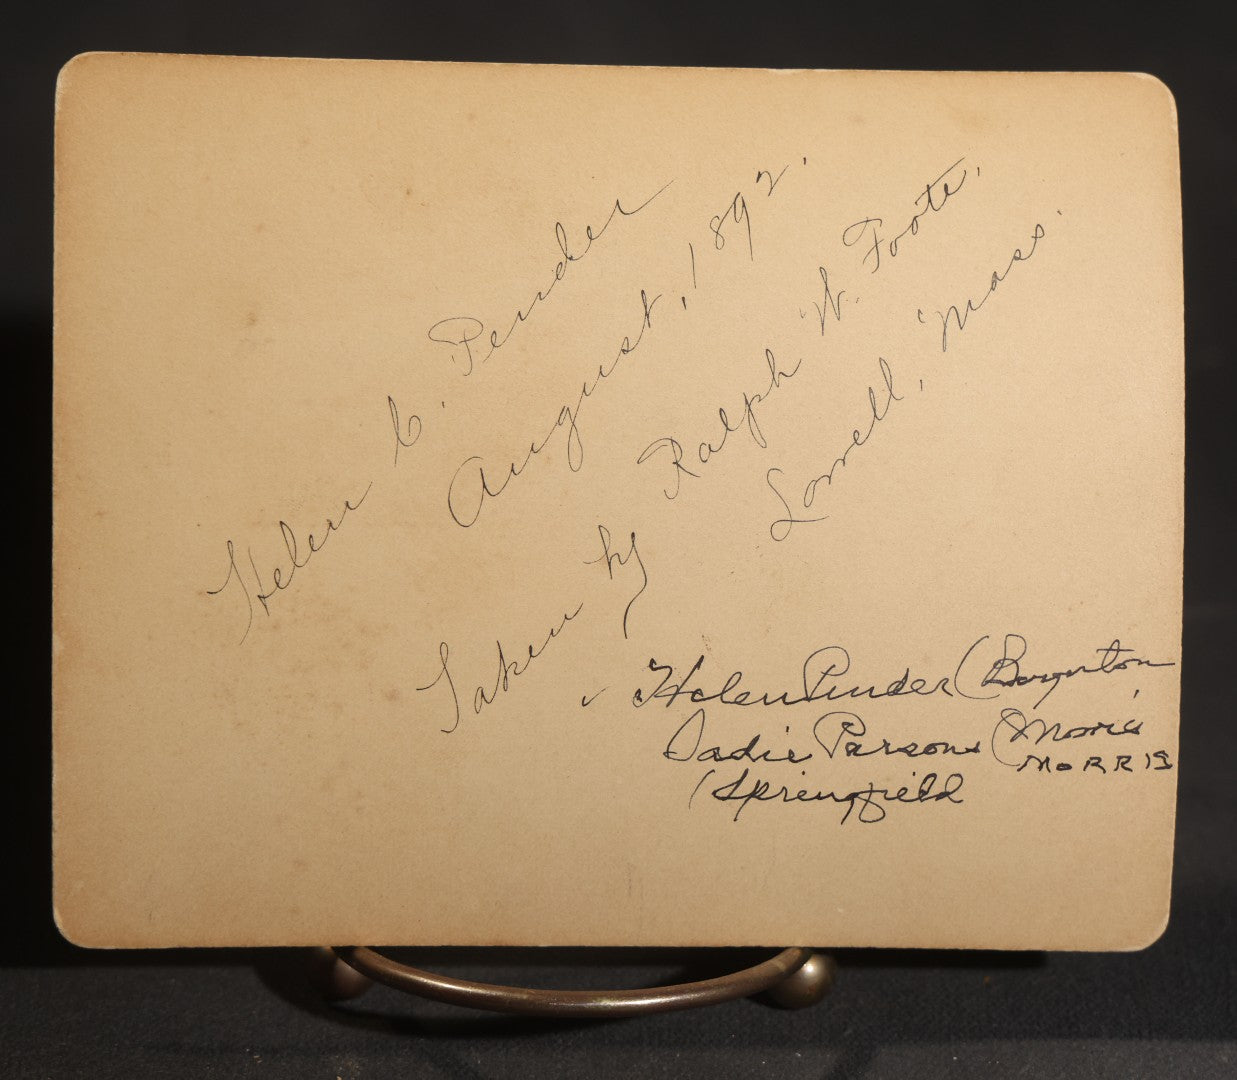 Helen C. Pender
August, 1892.
Taken by Ralph W. Foote,
Lowell, Mass.
Helen Pender (Boynton
Sadie Parsons (Morris
MORRIS
(Springfield